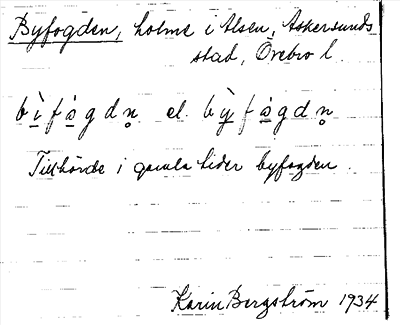 Byfogden, holme i Alsen, Askersunds
stad, Örebro l.
bìfågdn̥ el. bỳfågdn̥
Tillhörde i gamla tider byfogden.
Karin Bergström 1934